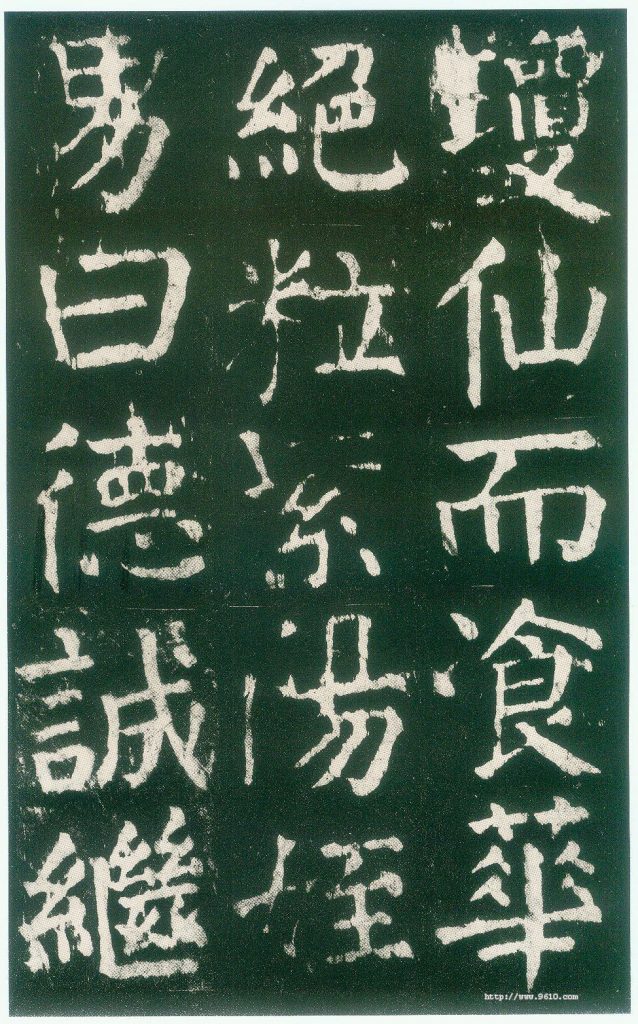 瓊仙而飡華
絕粒紫陽姪
男曰德誠繼
http://www.9610.com